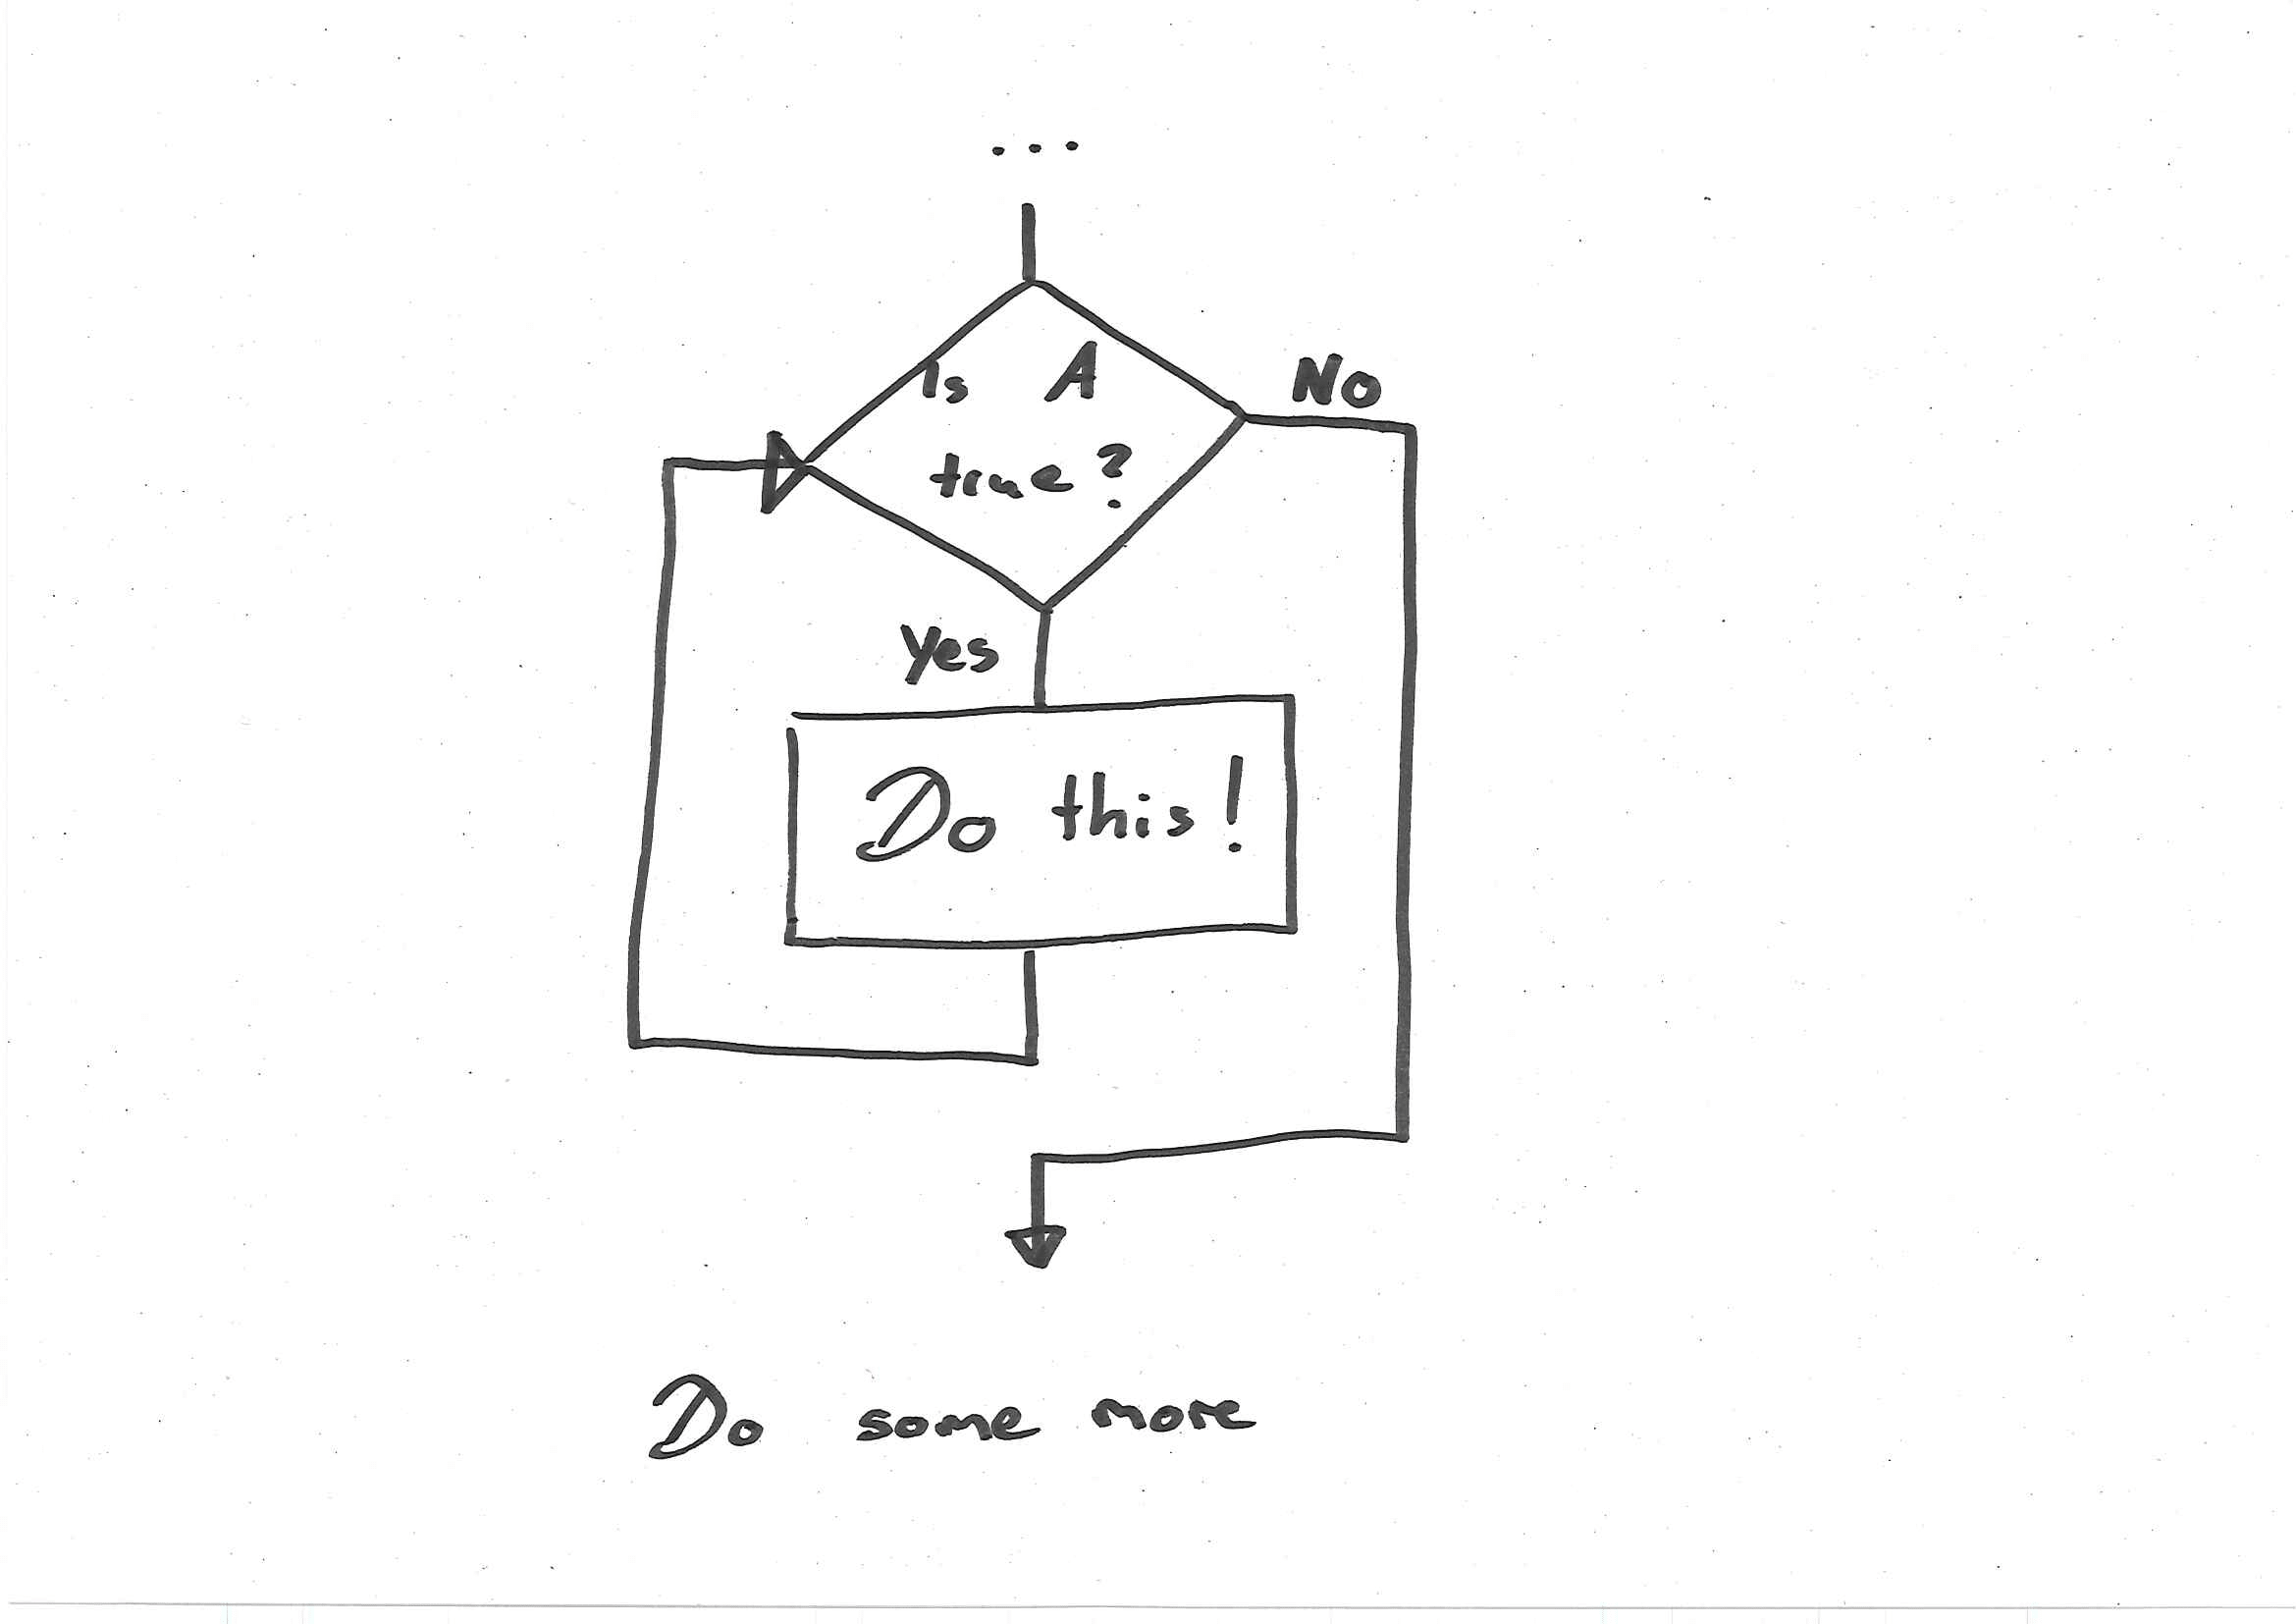 ...
Is A
true?
No
Yes
Do this!
Do some more